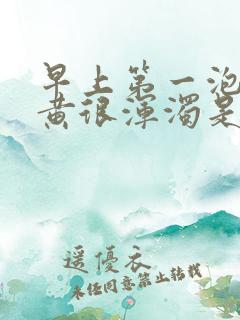 早上第一泡
黄很浑浊是
遥优衣
未经同意禁止转载